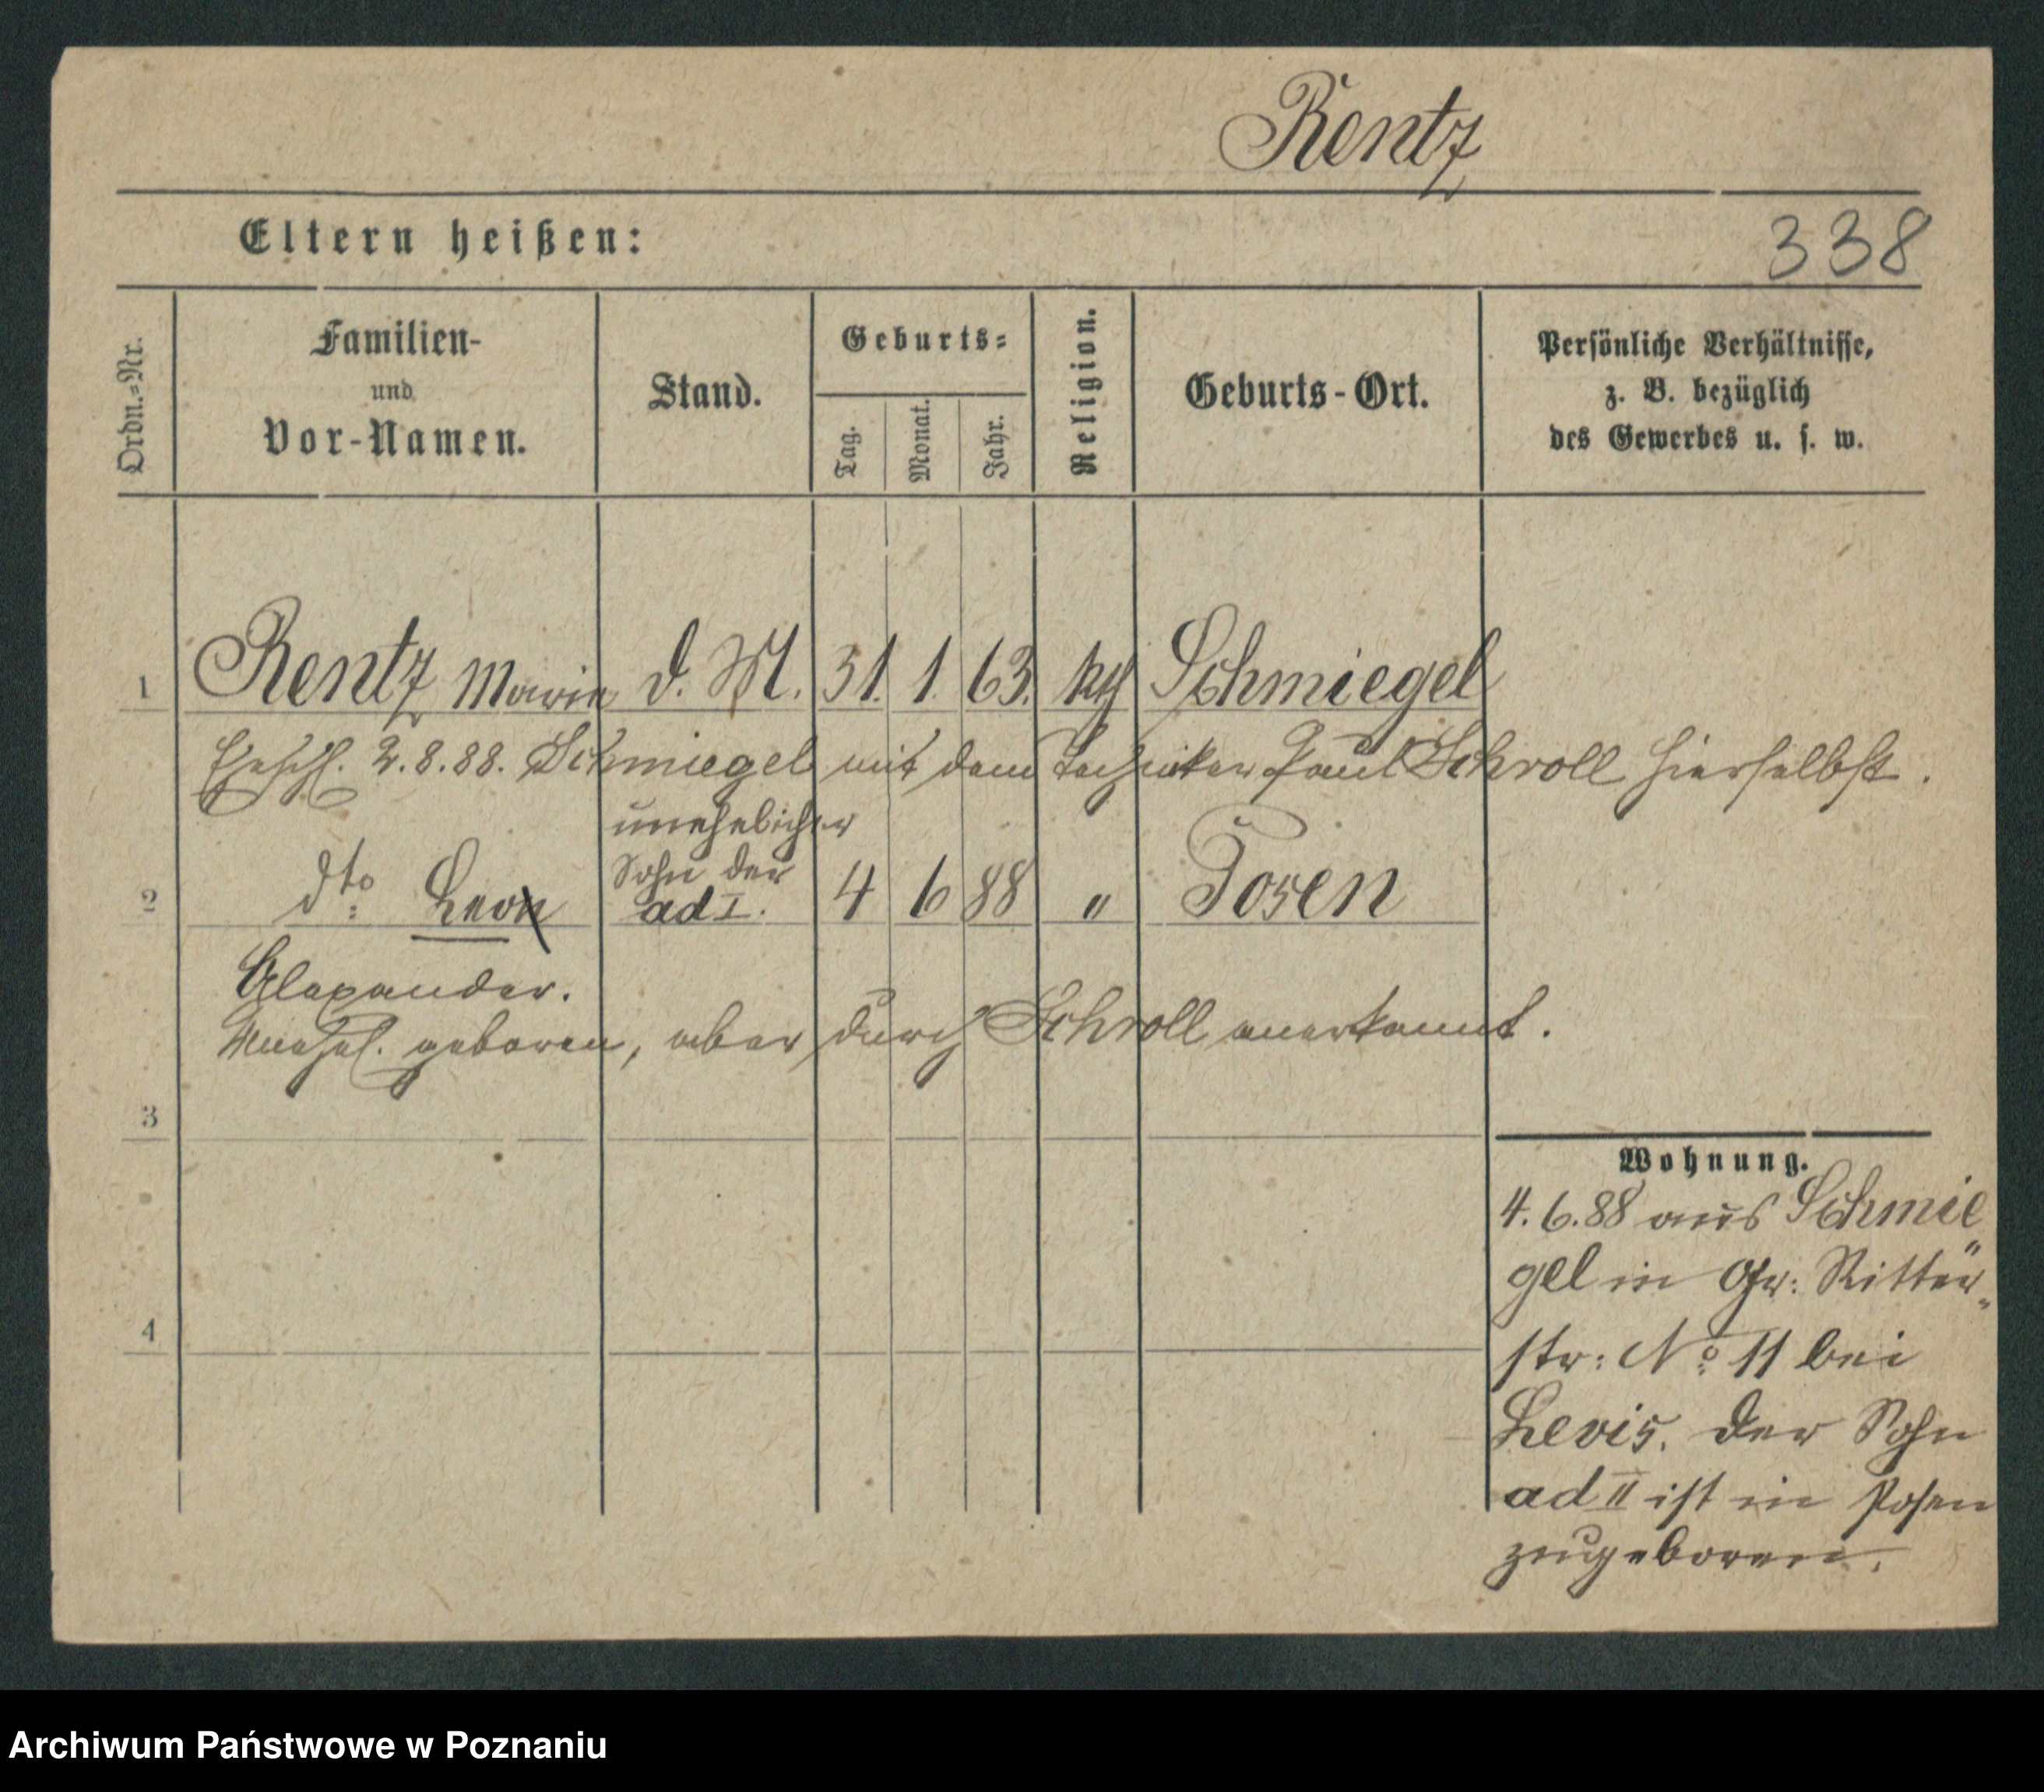 Rentz
Eltern heißen:
338
Ordn.=Nr.
Familien-
und
Vor-Namen.
Stand.
Geburts=
Tag.
Monat.
Jahr.
Religion.
Geburts-Ort.
Persönliche Verhältnisse,
z. B. bezüglich
des Gewerbes u. s. w.
1 Rentz Marie d. M. 31. 1. 63. kth Schmiegel
Ehesch. 2.8.88. Schmiegel mit dem Techniker Paul Schroll hierselbst.
unehelicher
Sohn der
2 dto: Leon ad I. 4 6 88 " Posen
Alexander.
Unehel. geboren, aber durch Schroll anerkannt.
3
4
Wohnung.
4.6.88 aus Schmie
gel in Gr: Ritter„
str: No 11 bei
Levis. Der Sohn
ad II ist in Posen
zugeboren.
Archiwum Państwowe w Poznaniu